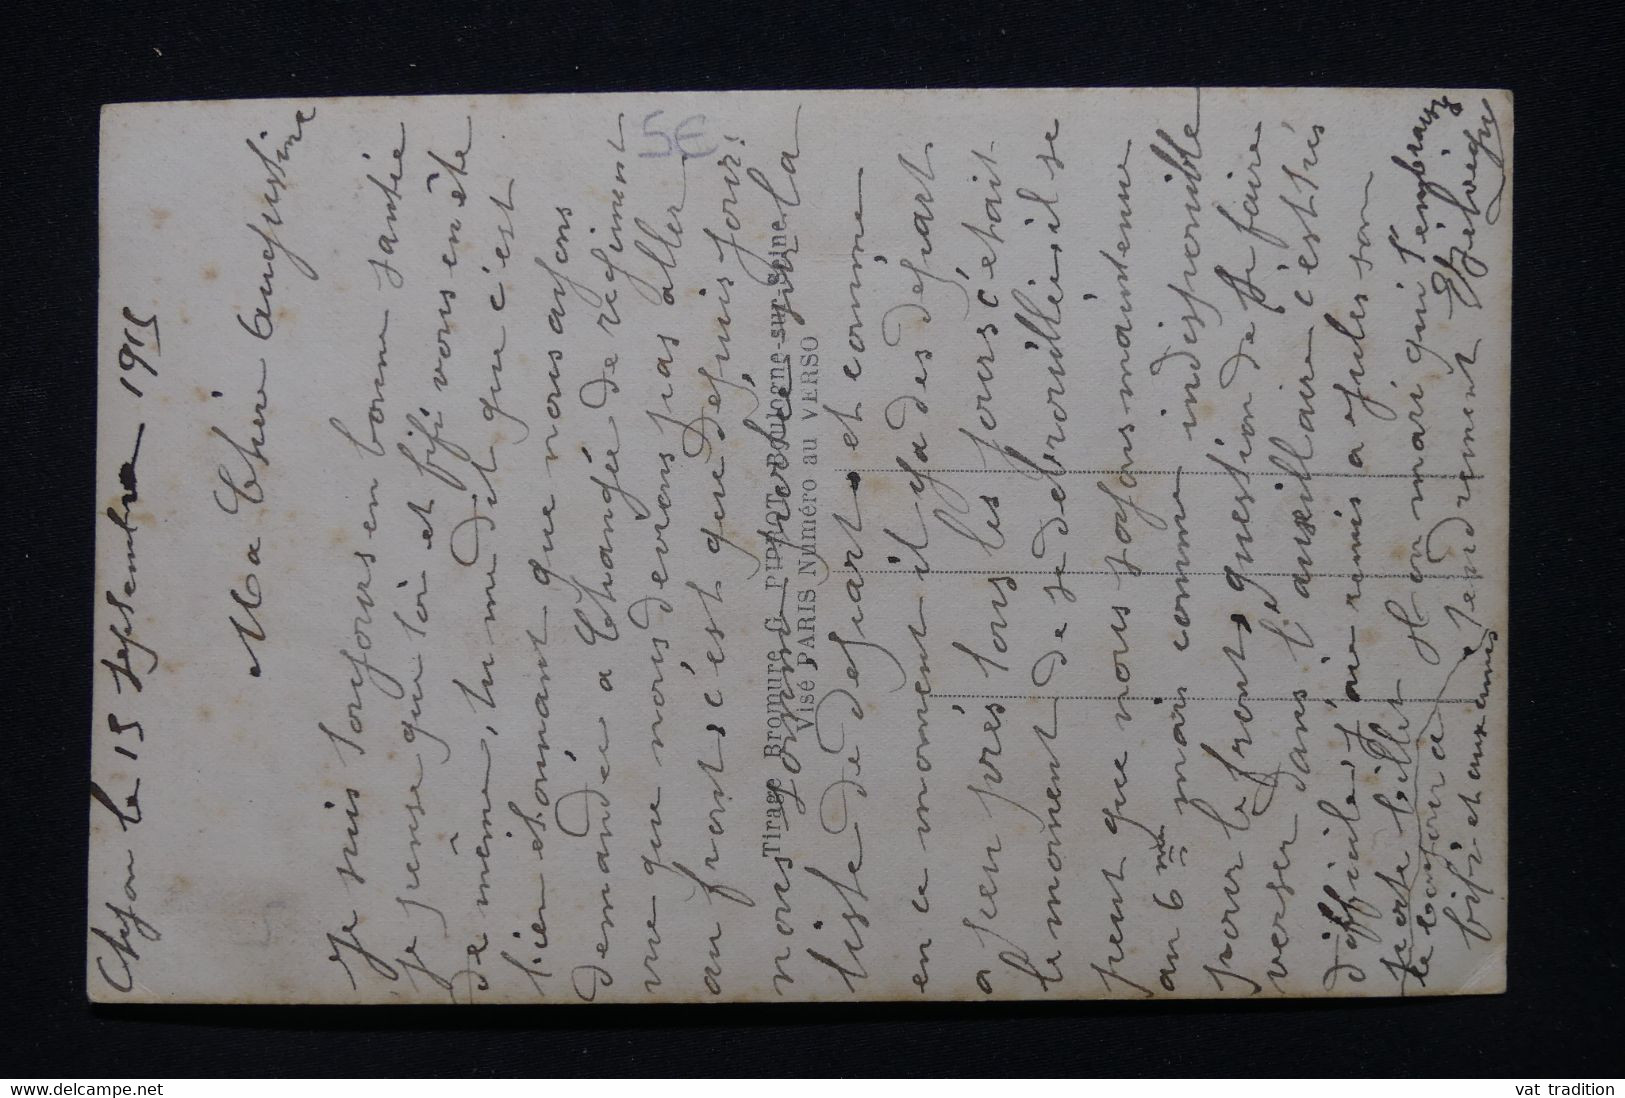 Lyon le 15 septembre 1915
Ma Chère Augustine
Je suis toujours en bonne santée
je pense que toi et fifi vous en ête
de même, tu me dit que c'est
bien etonnant que nous ayons
demandée a Changée de regiment
vue que nous devrons pas aller
au front, c'est que depuis jour
nous sur la
liste de depart, et comme
en ce moment il y a des depart
a peu prés tous les jours c'était
le moment de se debrouillier, il se
peut que nous soyons maintenue
au 6me mais comme indisponible
pour le front, question de se faire
verser dans l'auxillaire c'est trés
difficile, j'ai remis a Jules son
porte billet
Ton mari qui t'embrasse
tendrement
fifi et aux amis
Tirage Bromure G. PIPROT Boulogne-sur-Seine
Visé PARIS Numéro au VERSO
5€
vat tradition